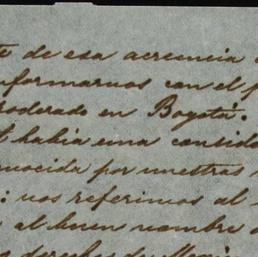 de esa acreencia
formarnos con el
poderado en Bogotá.
había una cantidad
nocida por nuestras
: nos referimos al
al buen nombre
derechos de